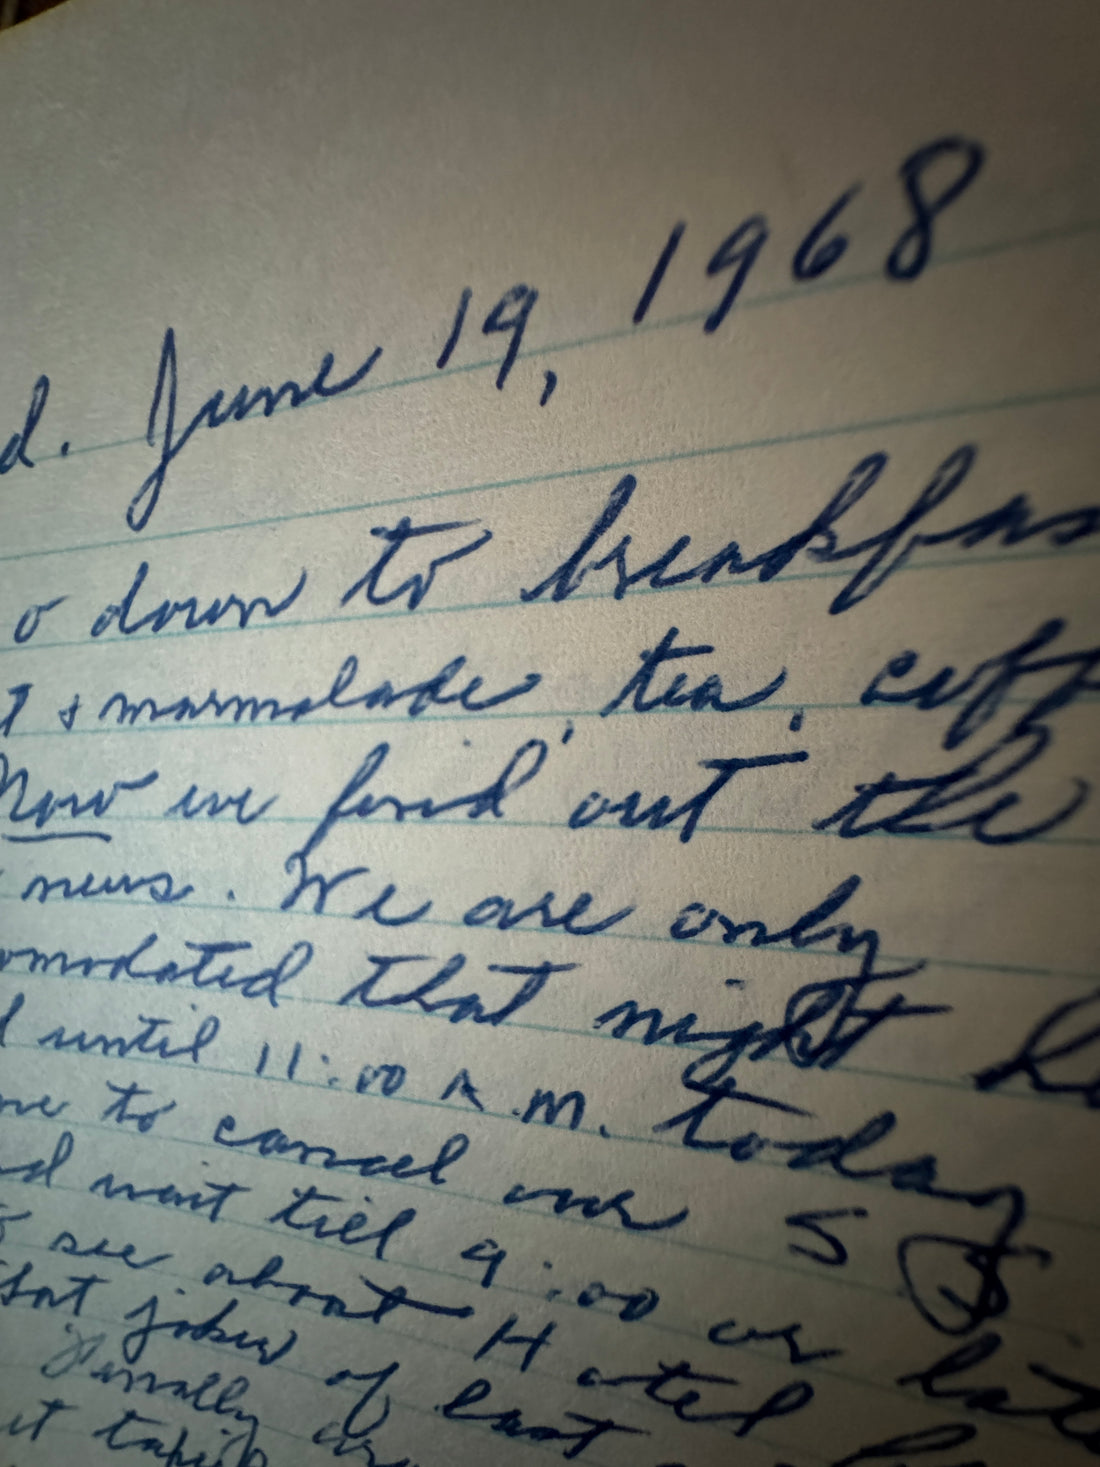 d. June 19, 1968
o down to breakfas
t & marmalade, tea, coff
Now we find out the
news. We are only
omodated that night
d until 11:00 A.M. today
ve to cancel our 5 $
nd wait till 9:00 or late
o see about Hotel
that joker of last
finally
it